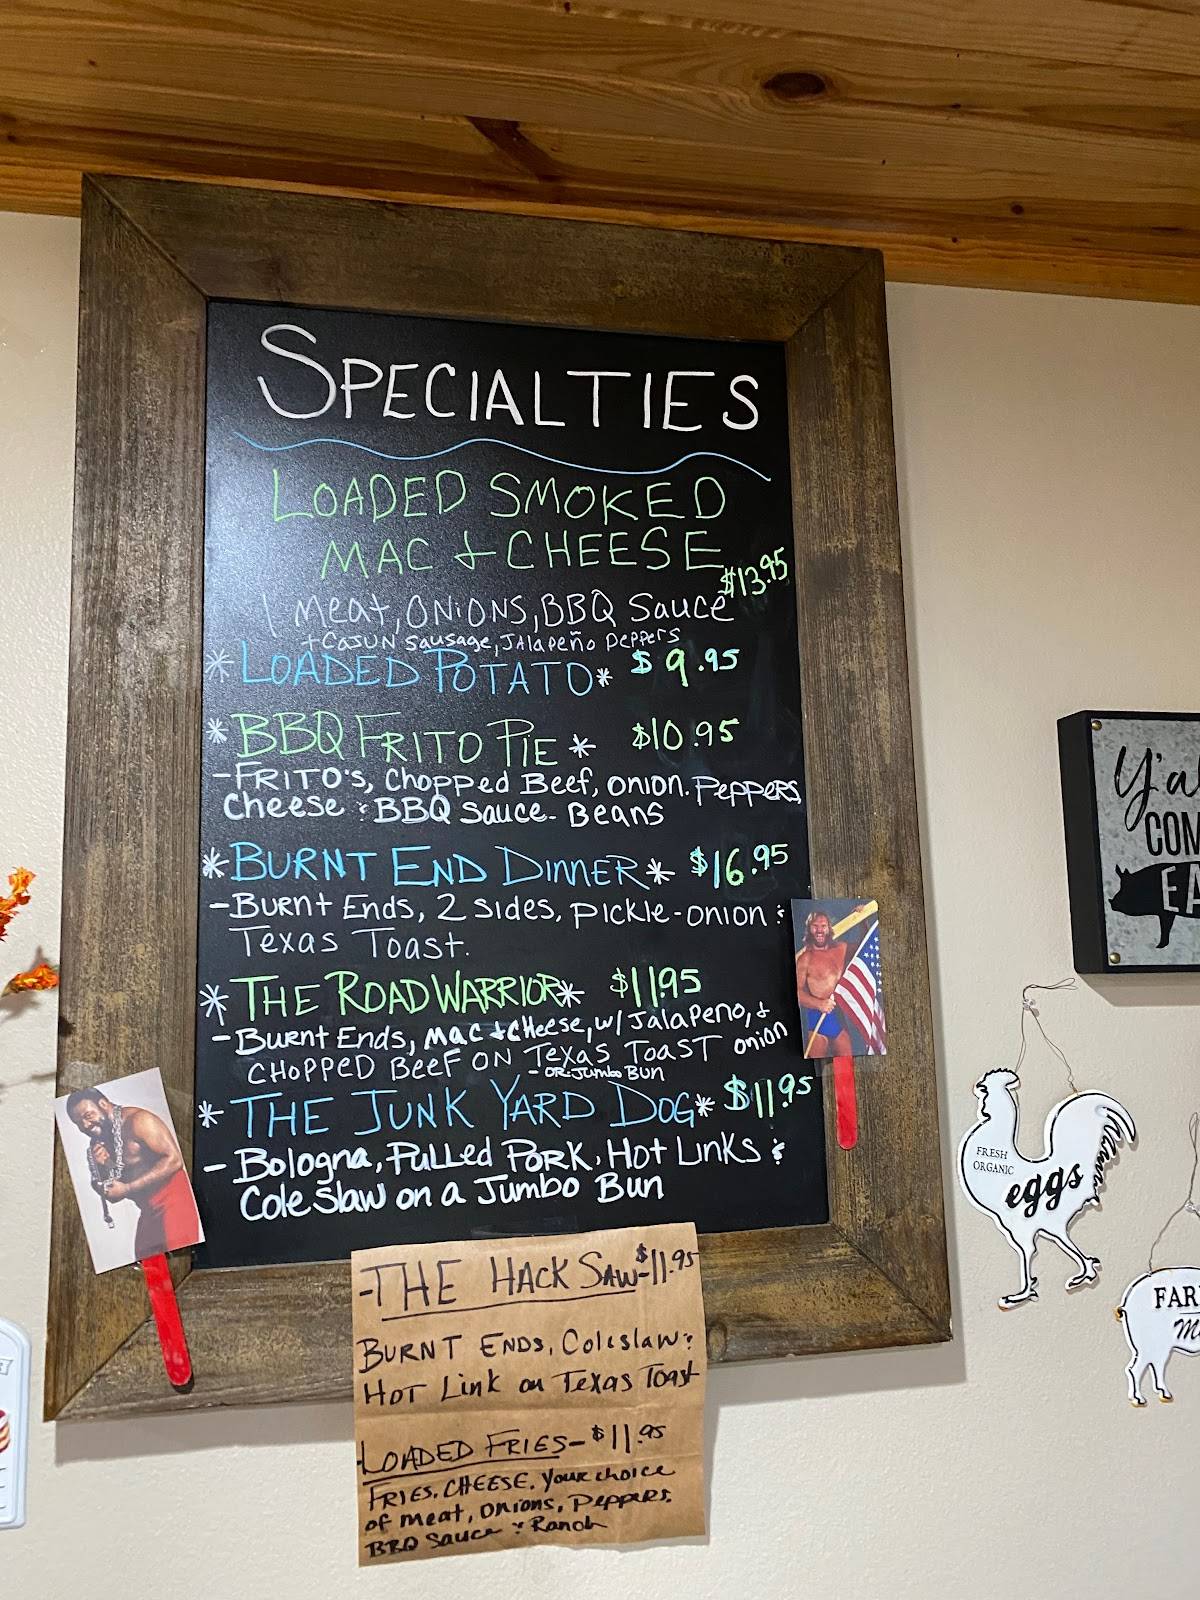 SPECIALTIES
LOADED SMOKED
MAC & CHEESE
$13.95
1 Meat, ONIONS, BBQ Sauce
+ CAJUN Sausage, JAlapeño Peppers
*LOADED POTATO* $9.95
*BBQ FRITO PIE* $10.95
-FRITO'S, Chopped Beef, onion. Peppers,
Cheese & BBQ Sauce- Beans
*BURNT END DINNER* $16.95
-Burnt Ends, 2 sides, pickle-onion &
Texas Toast.
*THE ROAD WARRIOR* $11.95
-Burnt Ends, Mac & cheese, w/ Jalapeno, &
CHOPPED BEEF ON Texas Toast onion
-OR: Jumbo BUN
*THE JUNK YARD DOG* $11.95
- Bologna, Pulled PORK, Hot Links &
Cole Slaw on a Jumbo Bun
-THE HACK SAW-$11.95
BURNT ENDS, Coleslaw &
HOT Link on Texas Toast
-LOADED FRIES-$11.95
FRIES, CHEESE, Your choice
of meat, onions, Peppers.
BBQ Sauce & Ranch
Y'al
COM
EA
FRESH
ORGANIC
eggs
FAR